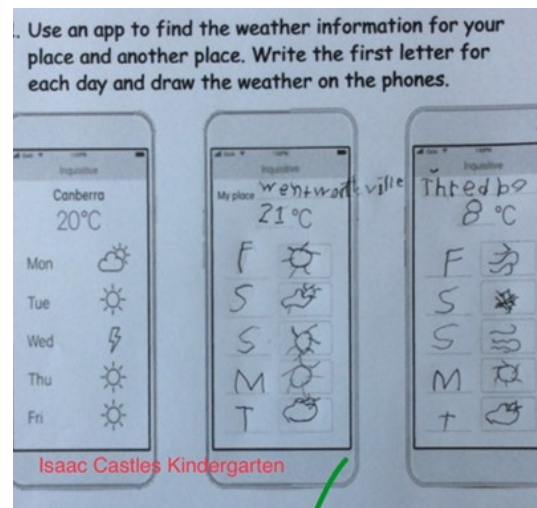 . Use an app to find the weather information for your
place and another place. Write the first letter for
each day and draw the weather on the phones.
Inquisitive
Canberra
20°C
Mon
Tue
Wed
Thu
Fri
Inquisitive
My place Wentworthville
21 °C
F
S
S
M
T
Inquisitive
Thredbo
8 °C
F
S
S
M
t
Isaac Castles Kindergarten